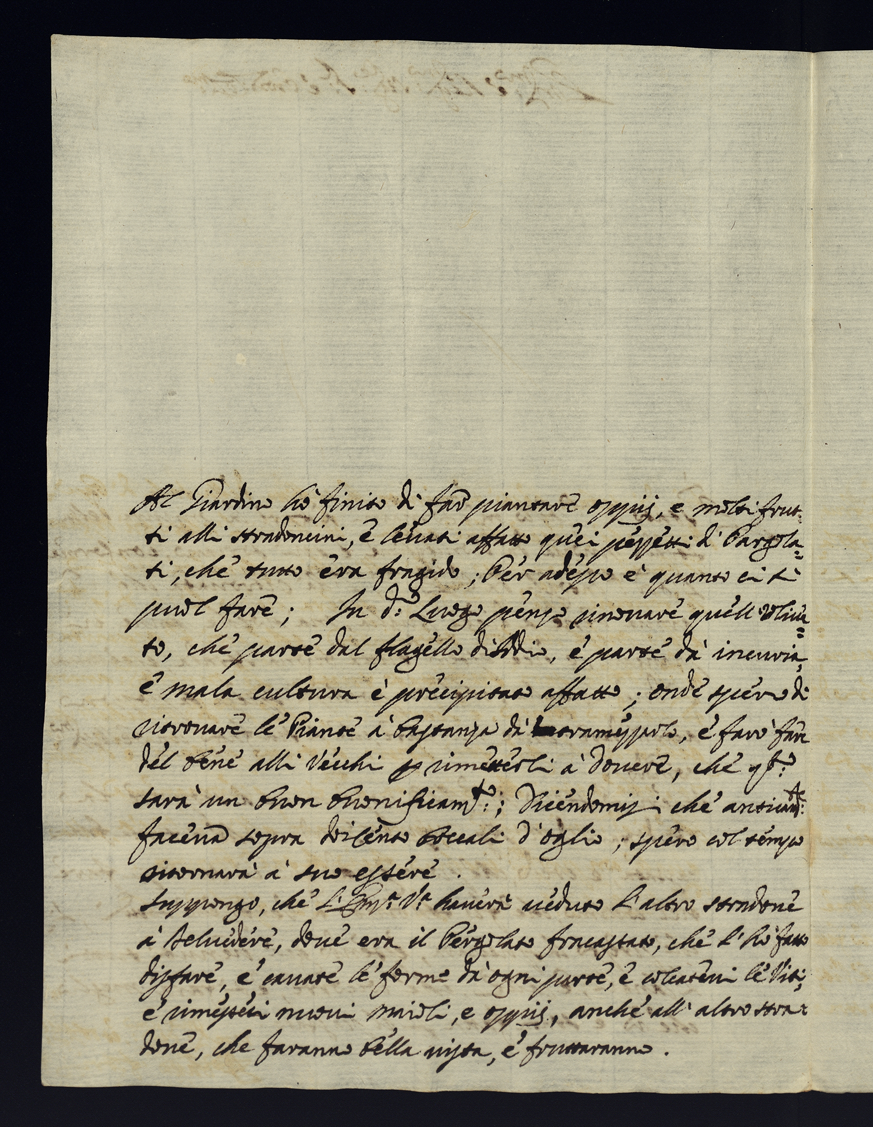 Al Giardino hò finito di far piantare oppij, e molti frut-
ti alli stradoncini, è levati affatto quei pezzetti di Pargola=
ti, che tutto era fragido; Per adesso è quanto ci si
puol fare; In d.º Luogo penso rinovare quell'oliva=
to, che parte dal flagello di Iddio, è parte dà incuria,
è mala cultura è precipitato affatto; onde spero di
ritrovare le Piante à bastanza dà tramezzarlo, è farò fare
del bene alli Vecchi p rimetterli à dovere, che q.sto
sarà un buon bonificam.to; Dicendomisi che anticam.te
faceva sopra doicento boccali d'oglio; spero col tempo
ritornarà à suo essere.
Suppongo, che L'Em.ª V.ª haverà veduto l'altro stradone
à Belvedere, dove era il Pergolato fracassato, che l'hò fatto
disfare, è cavate le forme dà ogni parte, è colcatevi le Viti,
è rimessevi nuovi maioli, e oppij, anche all'altro stra=
done, che faranno bella vista, è fruttaranno.